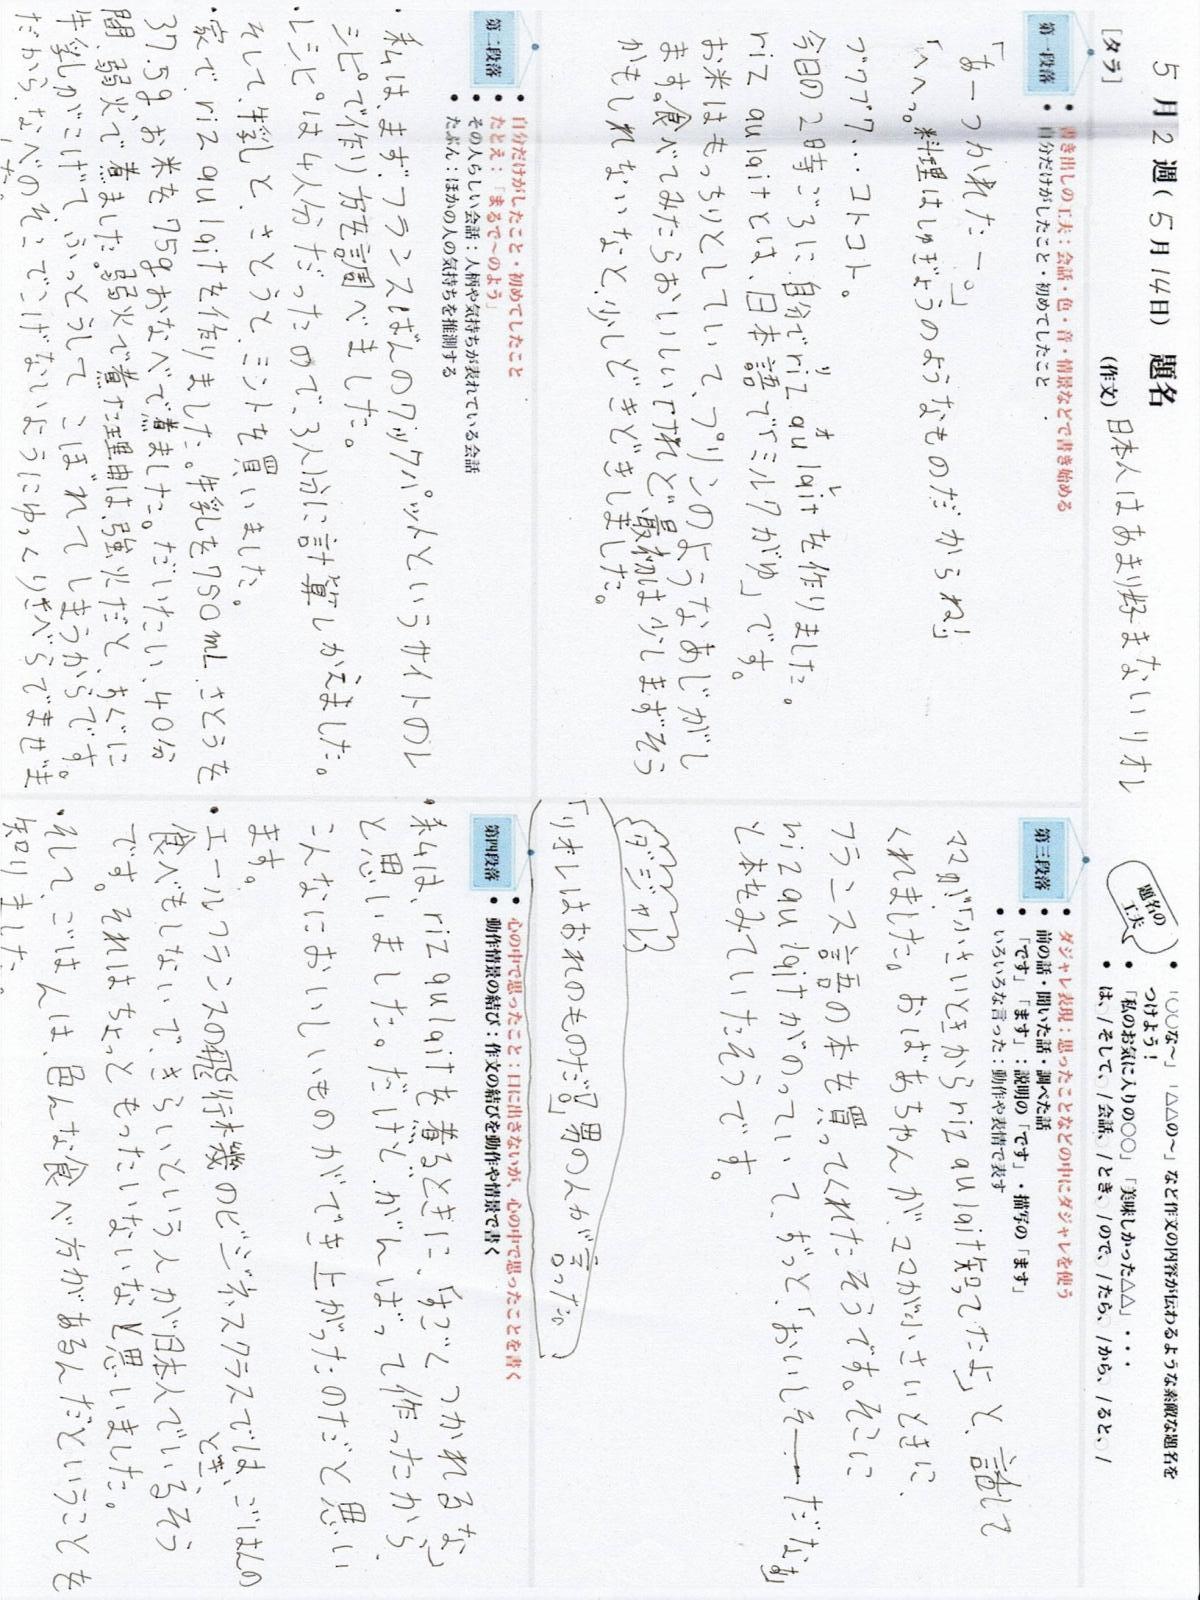 5月2週(5月14日) 題名 日本人はあまり好まないリオレ
[タラ] (作文)
題名の工夫
・「○○な～」「△△の～」など作文の内容が伝わるような素敵な題名をつけよう！
・「私のお気に入りの○○」「美味しかった△△」・・・
・は、○/そして、○/会話、○/とき、○/ので、○/たら、○/から、○/ると、○/
第一段落
・書き出しの工夫：会話・色・音・情景などで書き始める
・自分だけがしたこと・初めてしたこと
「あーつかれたー。」
「へへっ。料理はしゅぎょうのようなものだからね!」
ブクブク…コトコト。
今日の2時ごろに自分でriz au laitを作りました。
リ オ レ
riz au laitとは、日本語で「ミルクがゆ」です。
お米はもっちりとしていて、プリンのようなあじがし
ます。食べてみたらおいしいけれど、最初は少しまずそう
かもしれないなと、少しどきどきしました。
第二段落
・自分だけがしたこと・初めてしたこと
・たとえ：「まるで～のよう」
・その人らしい会話：人柄や気持ちが表れている会話
・たぶん：ほかの人の気持ちを推測する
・私は、まず、フランスばんのクックパットというサイトのレ
シピで作り方を調べました。
レシピは4人分だったので、3人分に計算しかえました。
そして、牛乳と、さとうと、ミントを買いました。
・家で、riz au laitを作りました。牛乳を750mL、さとうを
37.5g、お米を75gおなべで煮ました。だいたい、40分
間、弱火で煮ました。弱火で煮た理由は、強火だと、すぐに
牛乳がこげて、ふっとうして こぼれて しまうからです。
だから、なべのそこでこげないようにゆっくりきべらでまぜま
した。
第三段落
・ダジャレ表現：思ったことなどの中にダジャレを使う
・前の話・聞いた話・調べた話
・「です」「ます」：説明の「です」・描写の「ます」
・いろいろな言った：動作や表情で表す
ママが「小さいときからriz au lait知ってたよ」と、話して
くれました。おばあちゃんが、ママが小さいときに、
フランス語の本を買ってくれたそうです。そこに
riz au laitがのっていて、ずっと、「おいしそ――だなぁ」
と本をみていたそうです。
ダジャレ
「リオレはおれのものだ。」男の人が言った。
第四段落
・心の中で思ったこと：口に出さないが、心の中で思ったことを書く
・動作情景の結び：作文の結びを動作や情景で書く
・私は、riz au laitを煮るときに、「すごくつかれるな」
と思いました。だけど、がんばって作ったから、
こんなにおいしいものができ上がったのだと思い
ます。
・エールフランスの飛行機のビジネスクラスでは、ごはんの
とき、
食べもしないで、きらいという人が日本人でいるそう
です。それはちょっともったいないなと思いました。
・そして、ごはんは、色んな食べ方があるんだということを
知りました。